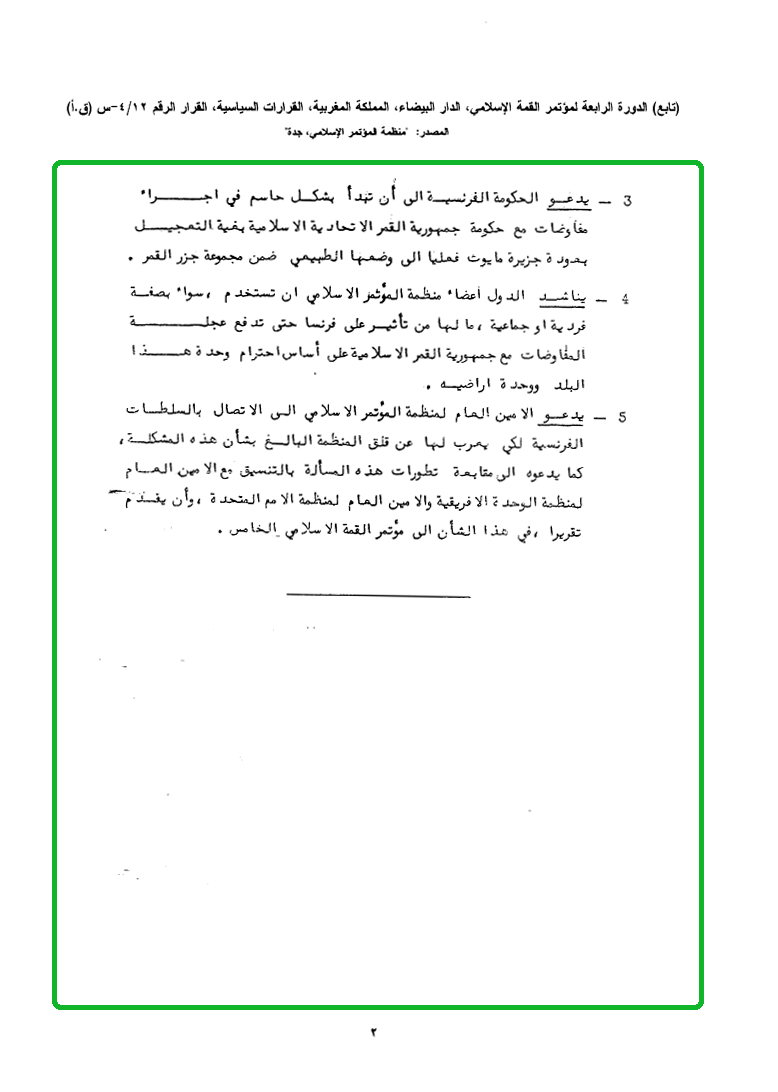 (تابع) الدورة الرابعة لمؤتمر القمة الإسلامي، الدار البيضاء، المملكة المغربية، القرارات السياسية، القرار الرقم ٤/١٢-س (ق.أ)
المصدر: "منظمة المؤتمر الإسلامي، جدة"
3 – يدعـو الحكومة الفرنسية الى أن تبدأ بشكل حاسم في اجراء
مفاوضات مع حكومة جمهورية القمر الاتحادية الاسلامية بغية التعجيل
بعودة جزيرة مايوت فعليا الى وضعها الطبيعي ضمن مجموعة جزر القمر .
4 – يناشد الدول أعضاء منظمة المؤتمر الاسلامي ان تستخدم ، سواء بصفة
فردية او جماعية ، ما لها من تأثير على فرنسا حتى تدفع عجلة
المفاوضات مع جمهورية القمر الاسلامية على أساس احترام وحدة هذا
البلد ووحدة اراضيه .
5 – يدعـو الامين العام لمنظمة المؤتمر الاسلامي الى الاتصال بالسلطات
الفرنسية لكي يعرب لها عن قلق المنظمة البالغ بشأن هذه المشكلة ،
كما يدعوه الى متابعة تطورات هذه المسألة بالتنسيق مع الامين العام
لمنظمة الوحدة الافريقية والامين العام لمنظمة الامم المتحدة ، وأن يقدم
تقريرا ، في هذا الشأن الى مؤتمر القمة الاسلامي الخامس .
٢